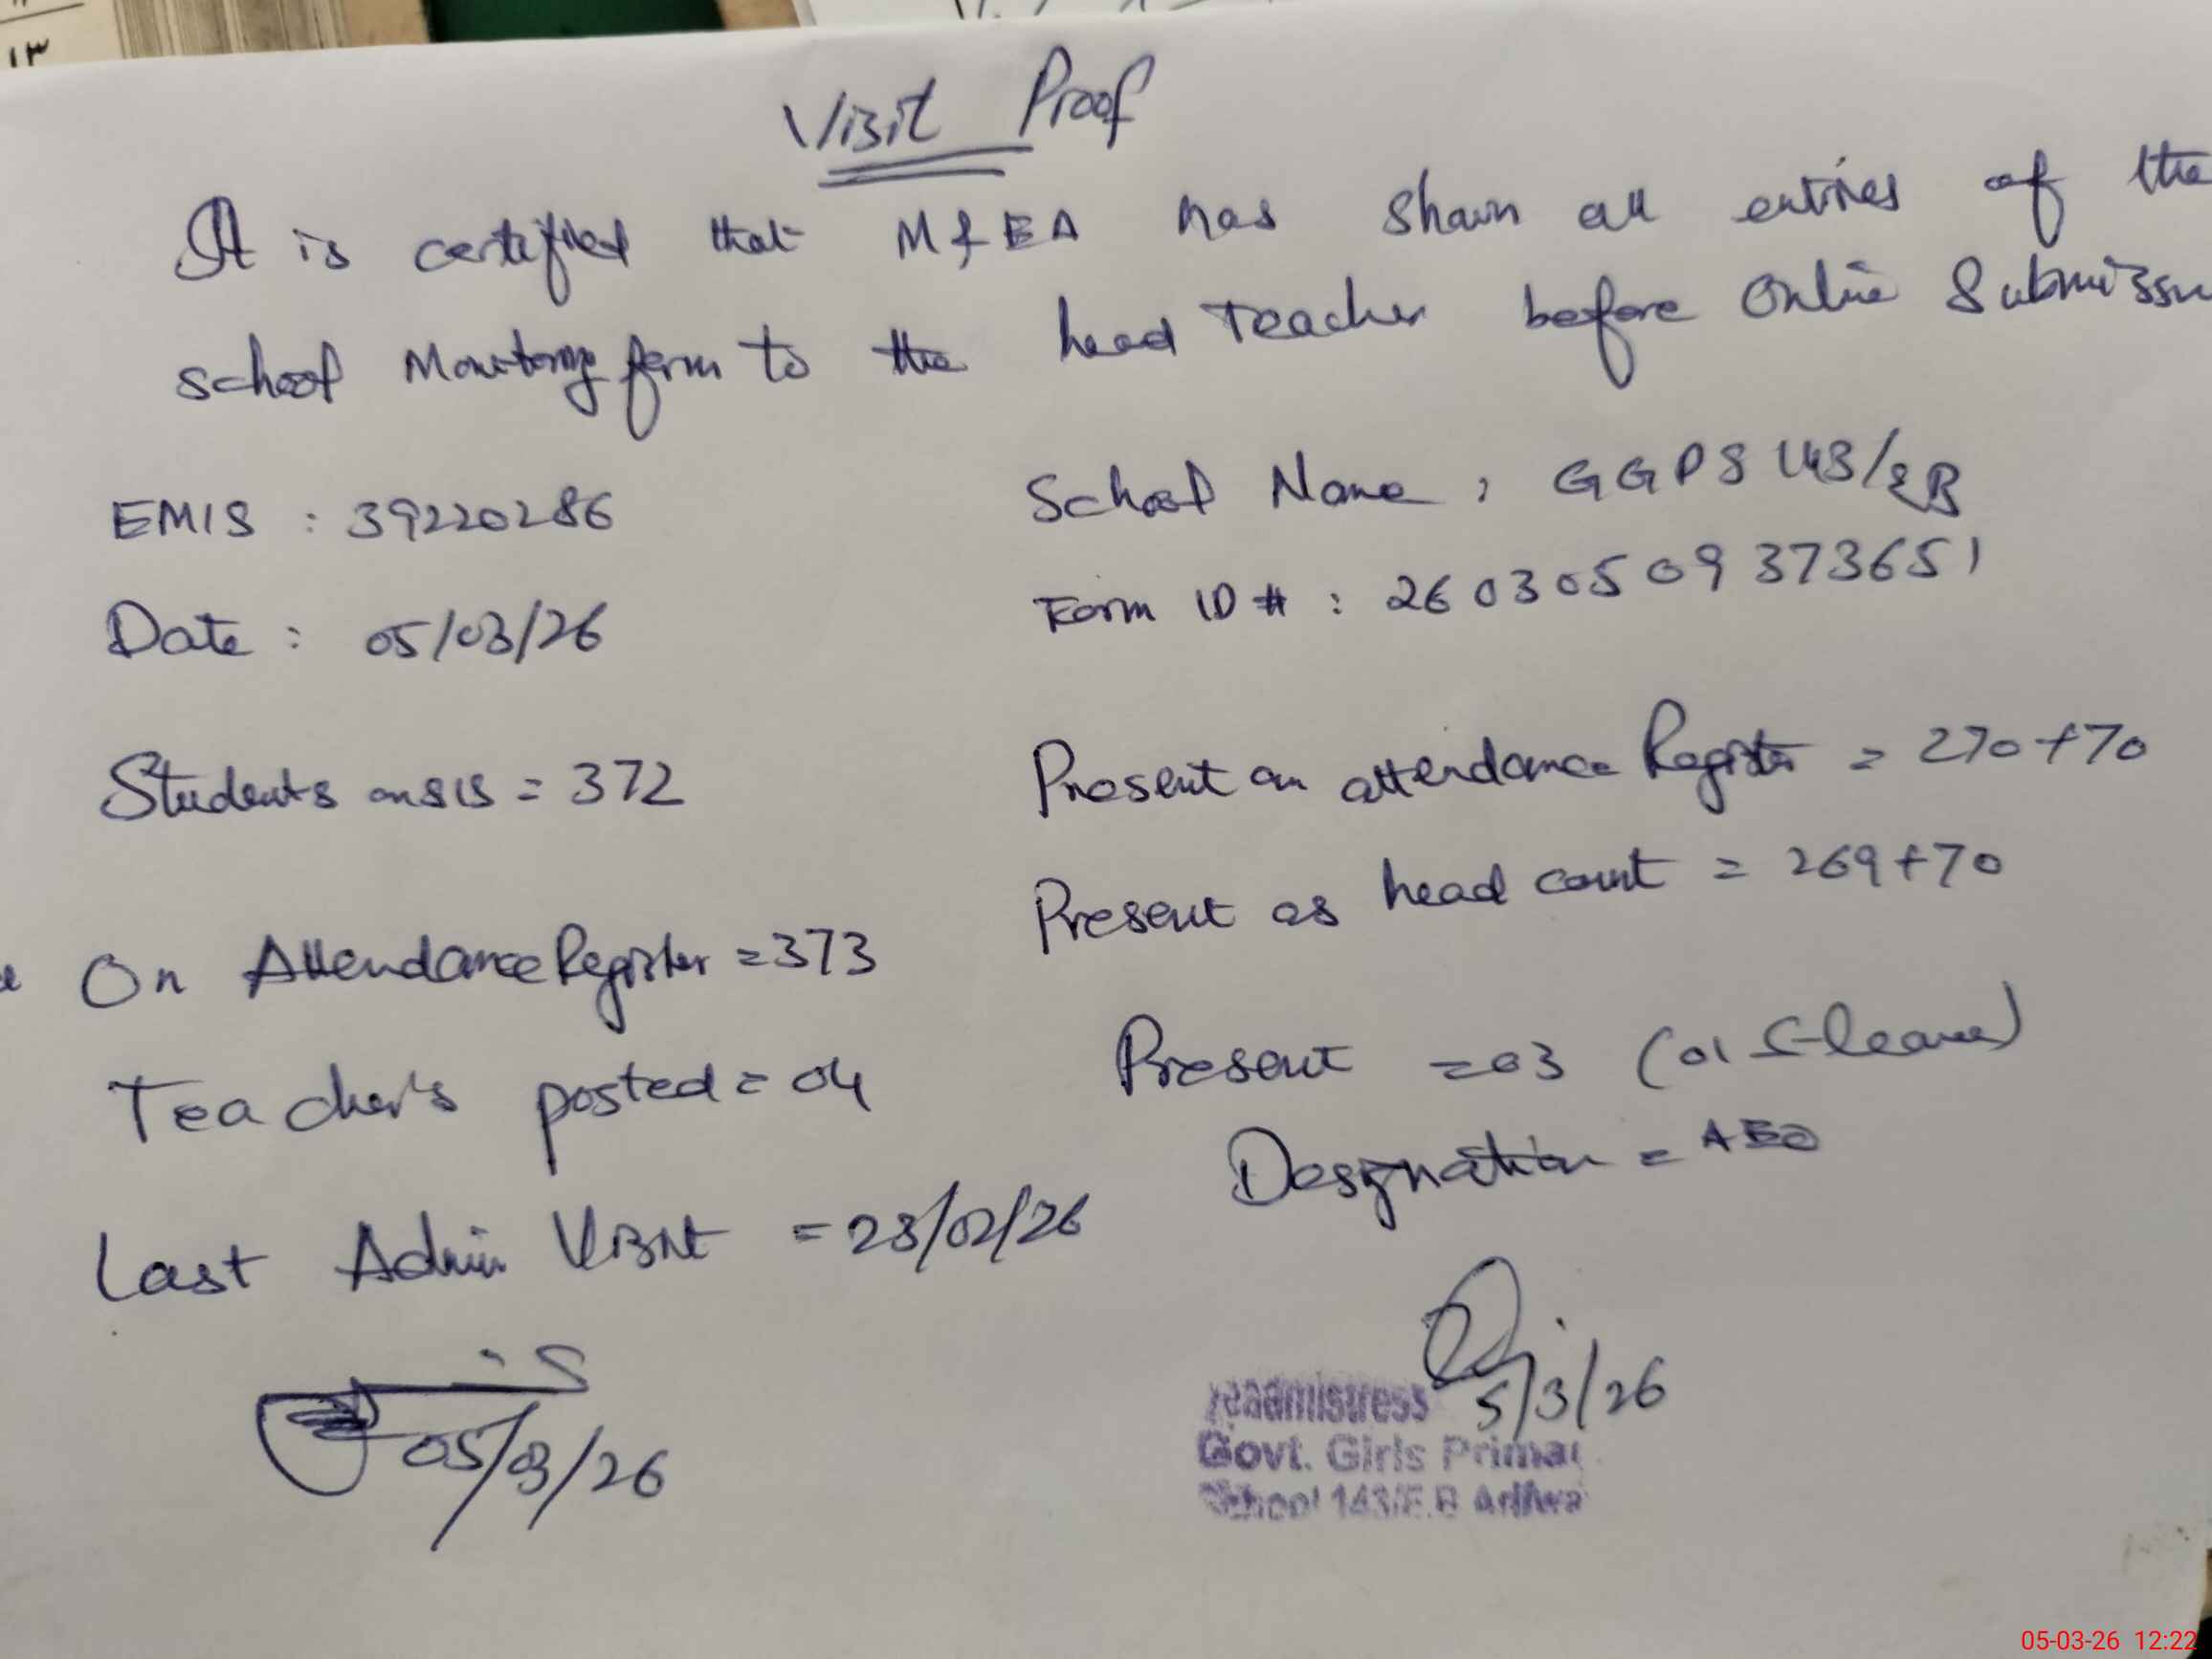 ١٣
Visit Proof
It is certified that M&EA has shawn all entries of the
school Monitoring form to the head Teacher before Online Submissn
EMIS : 39220286
School Name : GGPS 143/EB
Date : 05/03/26
Form ID # : 26030509373651
Students on SIS = 372
Present on attendance Register = 270+70
On Attendance Register = 373
Present as head count = 269+70
Teacher's posted = 04
Present = 03 (01 C-leave)
Last Admin Visit = 23/02/26
Designation = AEO
05/03/26
5/3/26
Headmistress
Govt. Girls Primar
School 143/E.B Arifwa
05-03-26 12:22